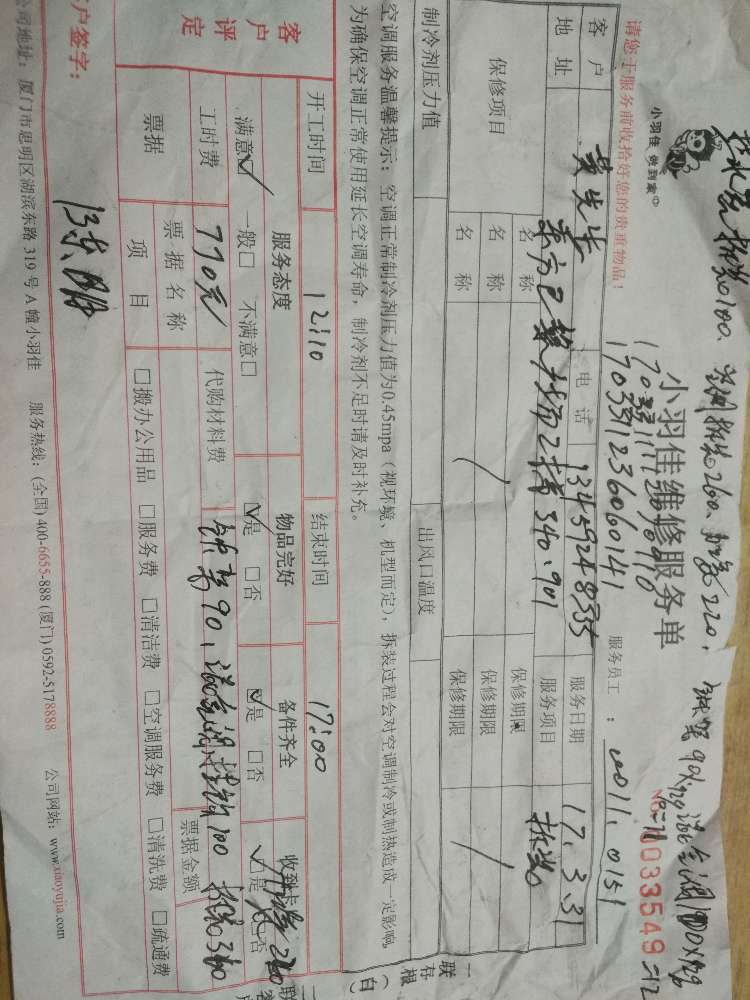 热水器拆装100、空调拆装260、加氟220、
小羽佳 做到家中
小羽佳维修服务单
请您于服务前收拾好您的贵重物品！
1703311236060141
服务员工：0011.0151
0033549
客户 黄先生 电话 13459248335 服务日期 17.3.31
地址 340.901 服务项目 拆装
保修项目 名称 保修期限
名称 保修期限
名称 保修期限
制冷剂压力值 出风口温度
空调服务温馨提示：空调正常制冷剂压力值为0.45mpa（视环境、机型而定），拆装过程会对空调制冷或制热造成一定影响，
为确保空调正常使用延长空调寿命，制冷剂不足时请及时补充。
开工时间 12:10 结束时间 17:00
客户评定 服务态度 物品完好 备件齐全
满意☑ 一般□ 不满意□ ☑是 □否 ☑是 □否 ☑是 □否
工时费 770元 代购材料费
票据 票据名称 票据金额
项目 □搬办公用品 □服务费 □清洁费 □空调服务费 □清洗费 □疏通费
户签字：
公司地址：厦门市思明区湖滨东路319号A幢小羽佳 服务热线：(全国)400-6655-888(厦门)0592-5178888 公司网站：www.xiaoyujia.com